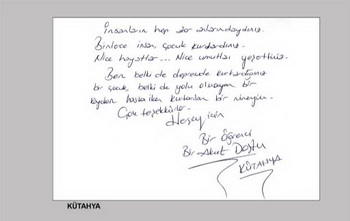 İnsanların hep zor anlarındaydınız.
Binlerce insan, çocuk kurtardınız.
Nice hayatlar... Nice umutlar yeşerttiniz.
Ben belki de depremde kurtardığınız
bir çocuk, belki de yolu olmayan bir
köyden hasta iken kurtarılan bir nineyim.
Çok teşekkürler.
Herşey için
Bir Öğrenci
Bir Akut Dostu
KÜTAHYA
KÜTAHYA